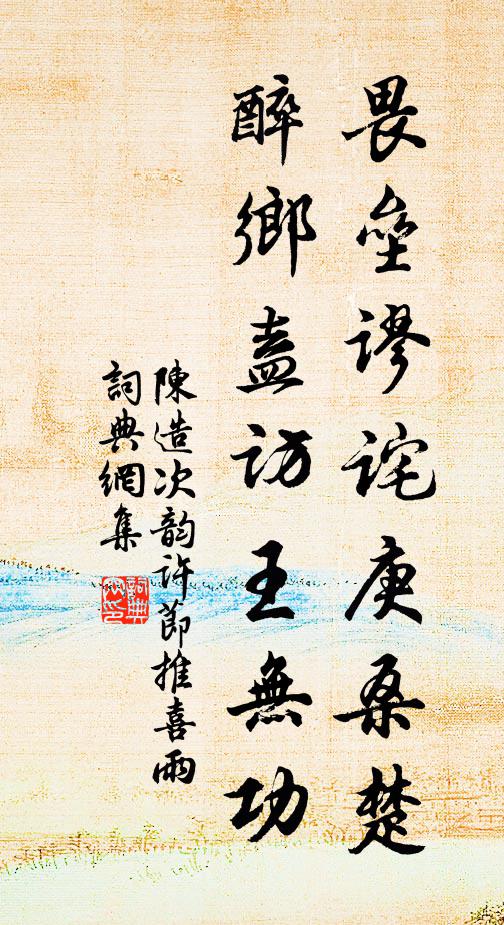 畏壘謬詫庚桑楚
醉鄉盍訪王無功
陳造次韵許節推喜雨
詞典網集